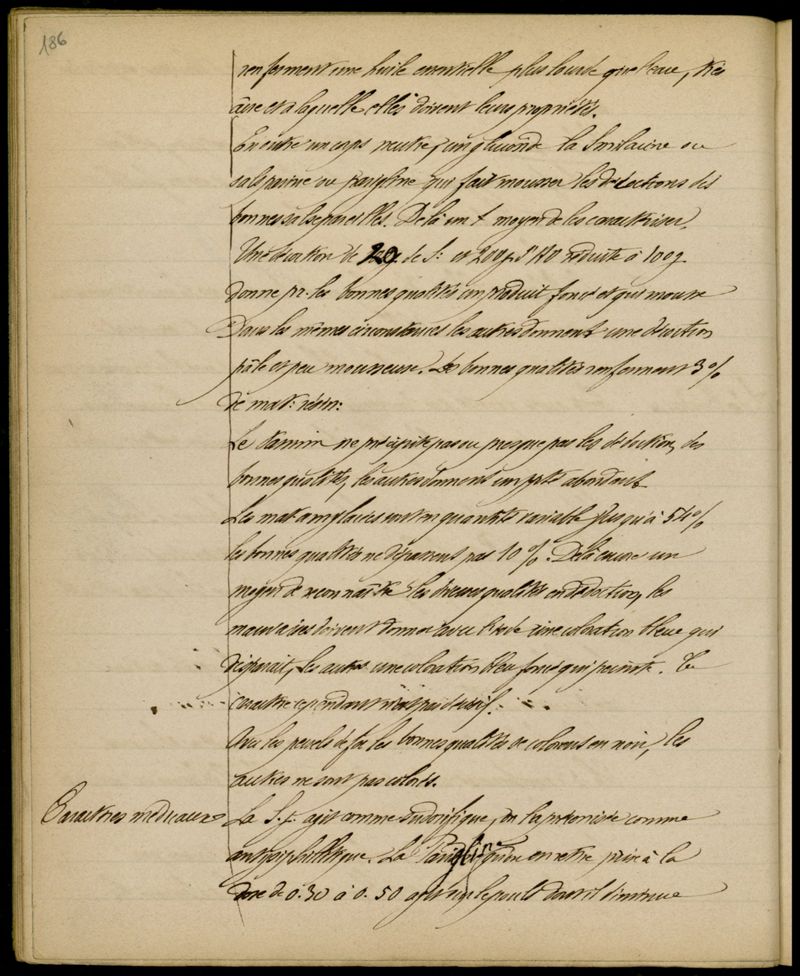 186
renferment une huile essentielle plus lourde que l'eau, très
âcre et à laquelle elles doivent leurs propriétés.
En outre un corps neutre, un glucoside la Smilacine ou
salseparine ou parigline qui fait mousser les décoctions des
bonnes salsepareilles. De là un moyen de les caractériser.
Une décoction de 20g de S: et 200g d'HO réduite à 100g
donne pr. les bonnes qualités un produit foncé et qui mousse
Dans les mêmes circonstances les autres donnent une décoction
pâle et peu mousseuse. Les bonnes qualités renferment 3%
de mat: résin:
Le tannin ne précipite pas ou presque pas les décoctions des
bonnes qualités, les autres donnent un ppté abondant
Les mat amylacées sont en quantité variable jusqu'à 54%
les bonnes qualités ne dépassent pas 10%. De là encore un
moyen de reconnaître les diverses qualités en décoction, les
mauvaises doivent donner avec l'iode une coloration bleue qui
disparait, les autres une coloration bleu foncé qui persiste. Ce
caractère cependant n'est pas décisif.
Avec les persels de fer les bonnes qualités se colorent en noir, les
autres ne sont pas colorés.
Caractères médicaux
La S.p. agit comme sudorifique, on la préconise comme
antisyphilitique. La Parigline qu'on en retire prise à la
dose de 0.30 à 0.50 agit sur le pouls dont il diminue